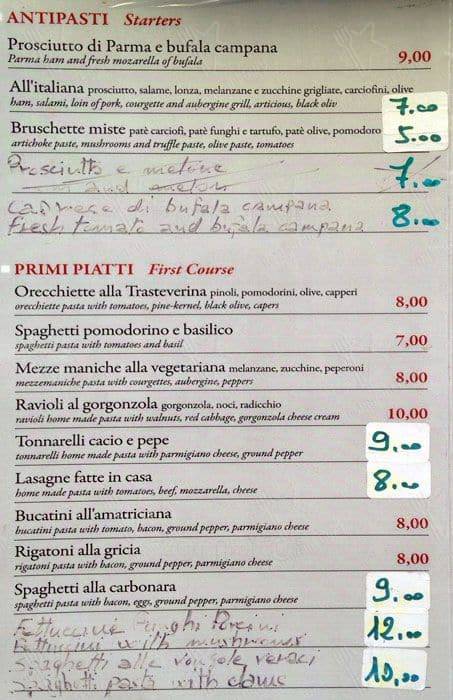 ANTIPASTI Starters
Prosciutto di Parma e bufala campana
Parma ham and fresh mozarella of bufala 9,00
All'italiana prosciutto, salame, lonza, melanzane e zucchine grigliate, carciofini, olive
ham, salami, loin of pork, courgette and aubergine grill, articious, black oliv 7.00
Bruschette miste patè carciofi, patè funghi e tartufo, patè olive, pomodoro
artichoke paste, mushrooms and truffle paste, olive paste, tomatoes 5.00
Prosciutto e melone
ham and melon 7.00
Caprese di bufala campana
fresh tomato and bufala campana 8.00
PRIMI PIATTI First Course
Orecchiette alla Trasteverina pinoli, pomodorini, olive, capperi
orecchiette pasta with tomatoes, pine-kernel, black olive, capers 8,00
Spaghetti pomodorino e basilico
spaghetti pasta with tomatoes and basil 7,00
Mezze maniche alla vegetariana melanzane, zucchine, peperoni
mezzemaniche pasta with courgettes, aubergine, peppers 8,00
Ravioli al gorgonzola gorgonzola, noci, radicchio
ravioli home made pasta with walnuts, red cabbage, gorgonzola cheese cream 10,00
Tonnarelli cacio e pepe
tonnarelli home made pasta with parmigiano cheese, ground pepper 9.00
Lasagne fatte in casa
home made pasta with tomatoes, beef, mozzarella, cheese 8.00
Bucatini all'amatriciana
bucatini pasta with tomato, bacon, ground pepper, parmigiano cheese 8,00
Rigatoni alla gricia
rigatoni pasta with bacon, ground pepper, parmigiano cheese 8,00
Spaghetti alla carbonara
spaghetti pasta with bacon, eggs, ground pepper, parmigiano cheese 9.00
Fettuccine funghi Porcini
Fettuccini with mushrooms 12.00
Spaghetti alle vongole veraci
Spaghetti pasta with clams 10,00